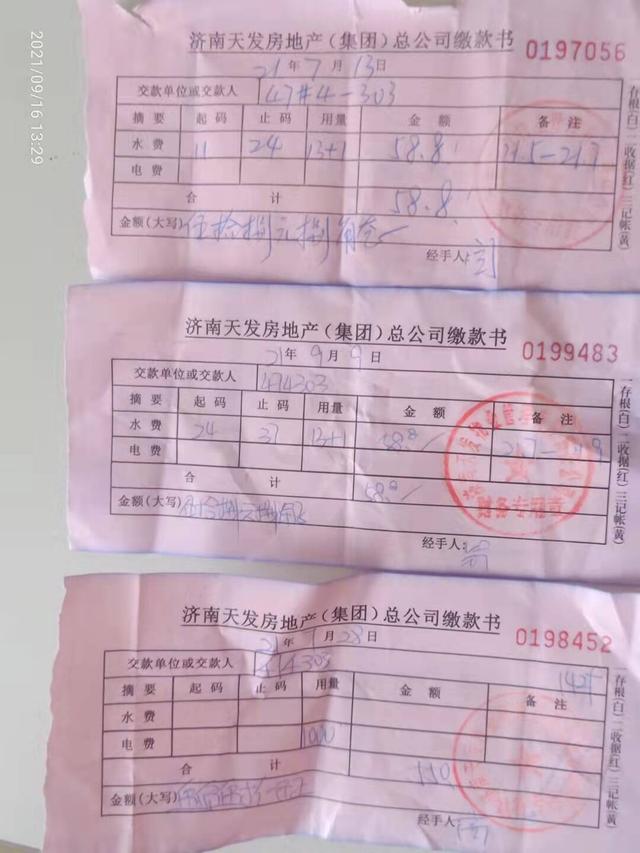 2021/09/16 13:29
济南天发房地产(集团)总公司缴款书 0197056
21年7月13日
交款单位或交款人 47#4-303
摘要 起码 止码 用量 金额 备注
水费 11 24 13+1 58.8 21.5-21.7
电费
合计 58.8
金额(大写) 伍拾捌元捌角
经手人:
一存根(白)二收据(红)三记帐(黄)
济南天发房地产(集团)总公司缴款书 0199483
21年9月9日
交款单位或交款人 474303
摘要 起码 止码 用量 金额 备注
水费 24 37 13+1 58.8
电费 21.7-21.9
合计 58.8
金额(大写)
经手人:
财务专用章
一存根(白)二收据(红)三记帐(黄)
济南天发房地产(集团)总公司缴款书 0198452
21年 月28日
交款单位或交款人 474303
摘要 起码 止码 用量 金额 备注
水费
电费 1000
合计
金额(大写)
经手人:
一存根(白)二收据(红)三记帐(黄)